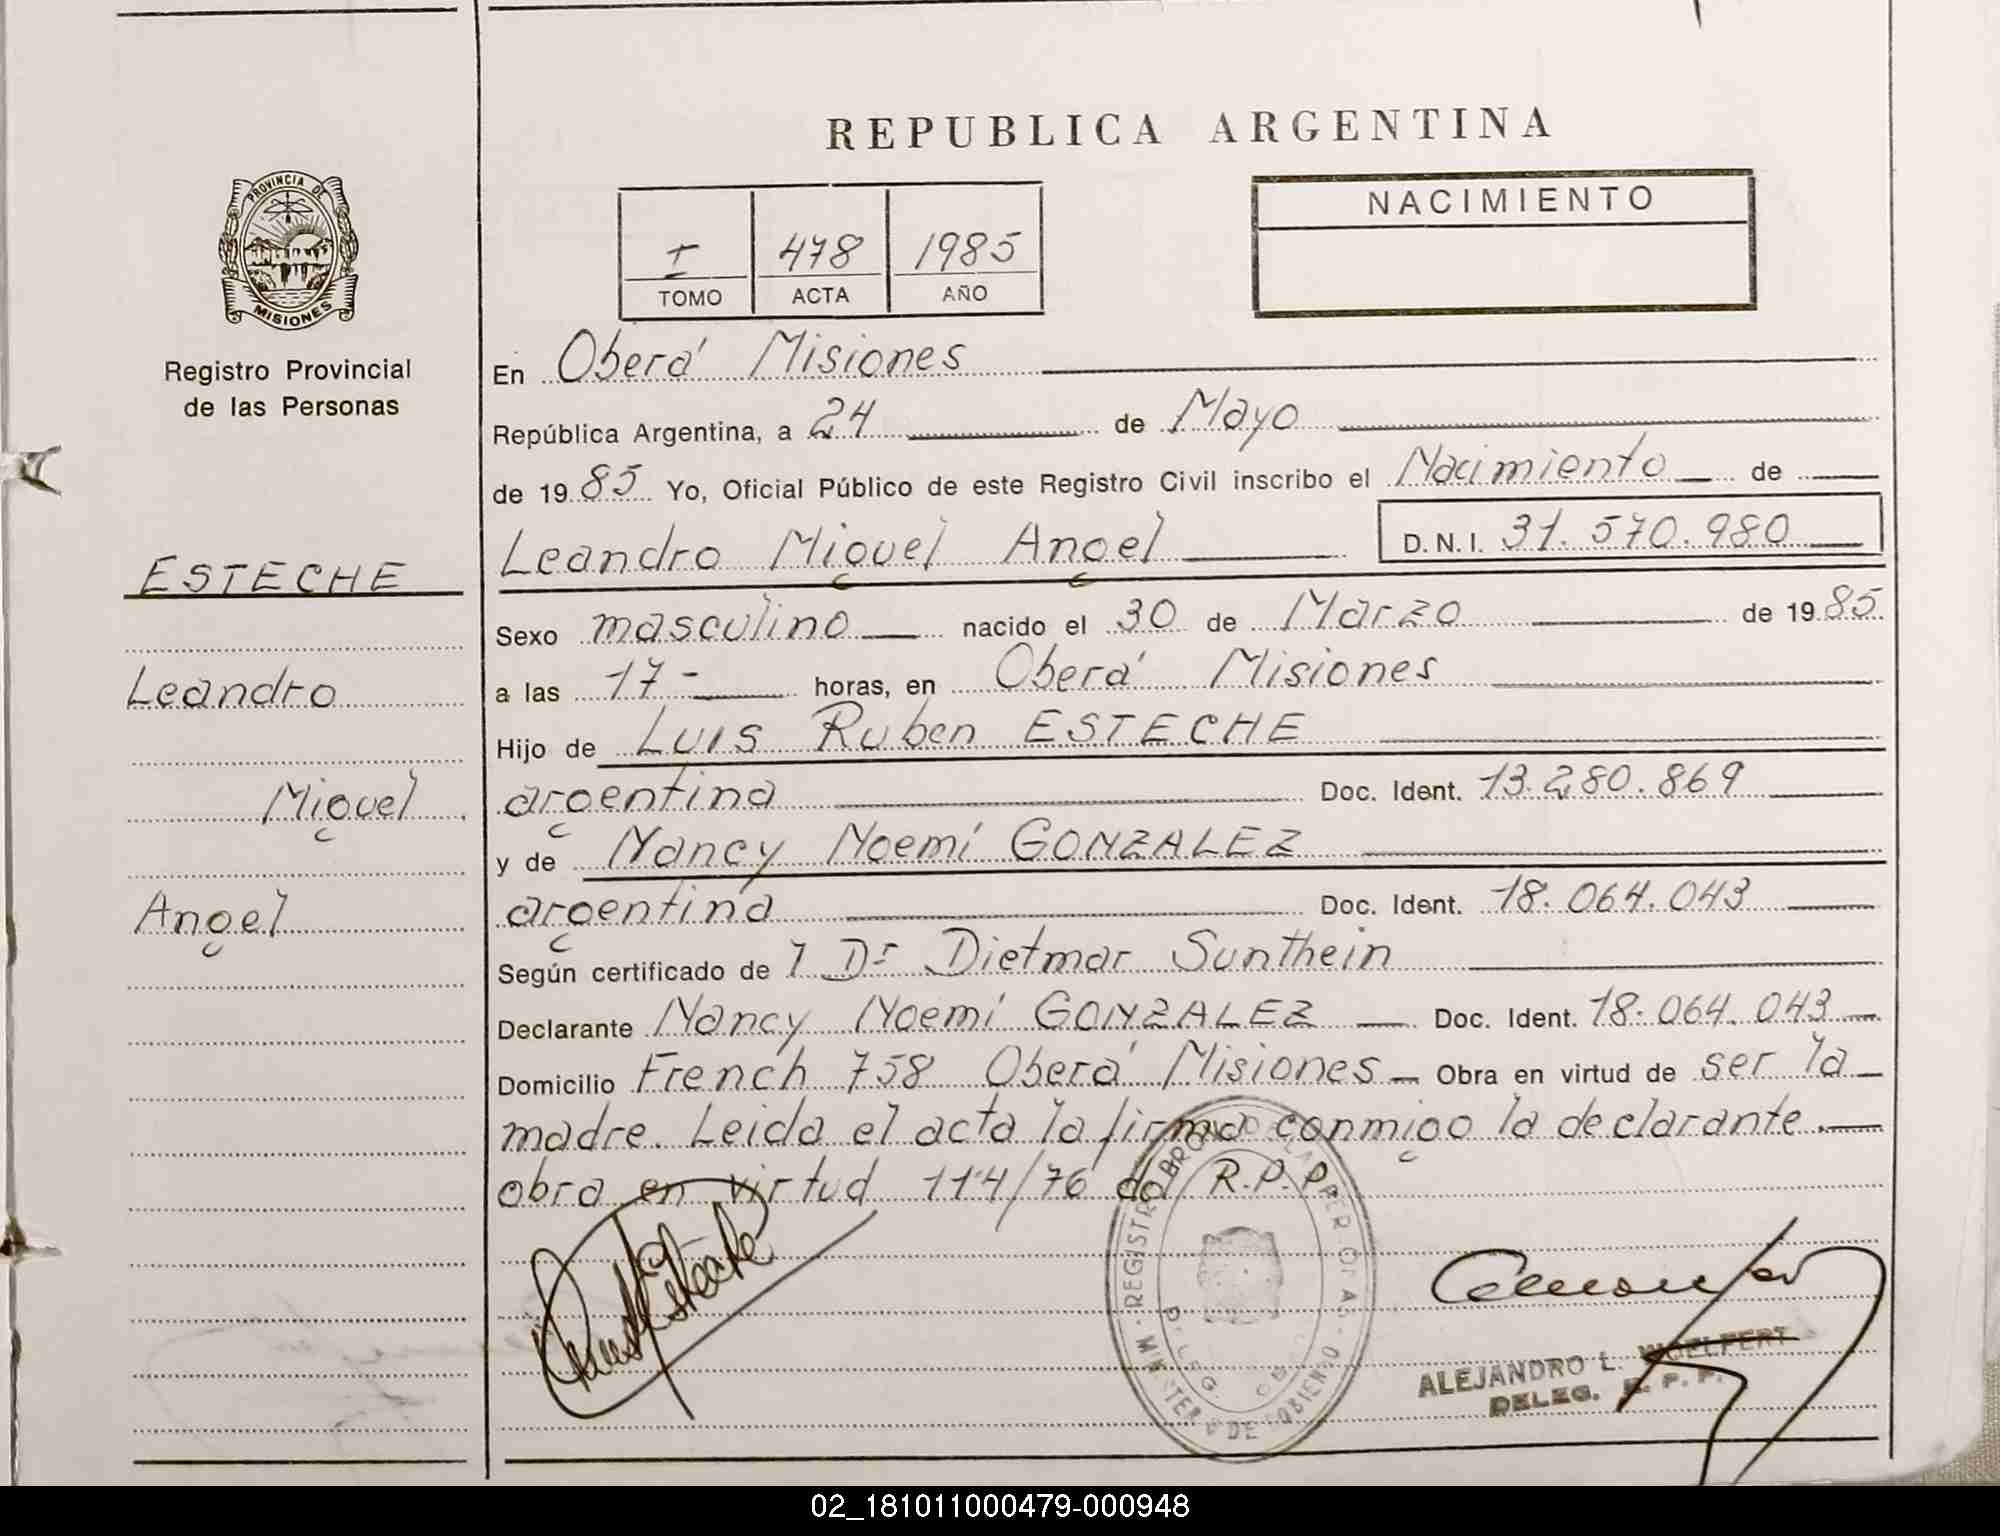 REPUBLICA ARGENTINA
PROVINCIA DE
MISIONES
Registro Provincial
de las Personas
I 478 1985
TOMO ACTA AÑO
NACIMIENTO
En Oberá Misiones
República Argentina, a 24 de Mayo
de 1985 Yo, Oficial Público de este Registro Civil inscribo el Nacimiento de
Leandro Miguel Angel D.N.I. 31.570.980
ESTECHE
Leandro
Miguel
Angel
Sexo masculino nacido el 30 de Marzo de 1985
a las 17- horas, en Oberá Misiones
Hijo de Luis Ruben ESTECHE
argentina Doc. Ident. 13.280.869
y de Nancy Noemí GONZALEZ
argentina Doc. Ident. 18.064.043
Según certificado de 1 Dr Dietmar Sunthein
Declarante Nancy Noemí GONZALEZ Doc. Ident. 18.064.043
Domicilio French 758 Oberá Misiones Obra en virtud de ser la
madre. Leida el acta la firma conmigo la declarante.
obra en virtud 114/76 del R.P.P.
ALEJANDRO L. WOELFERT
DELEG. R. P. P.
02_181011000479-000948